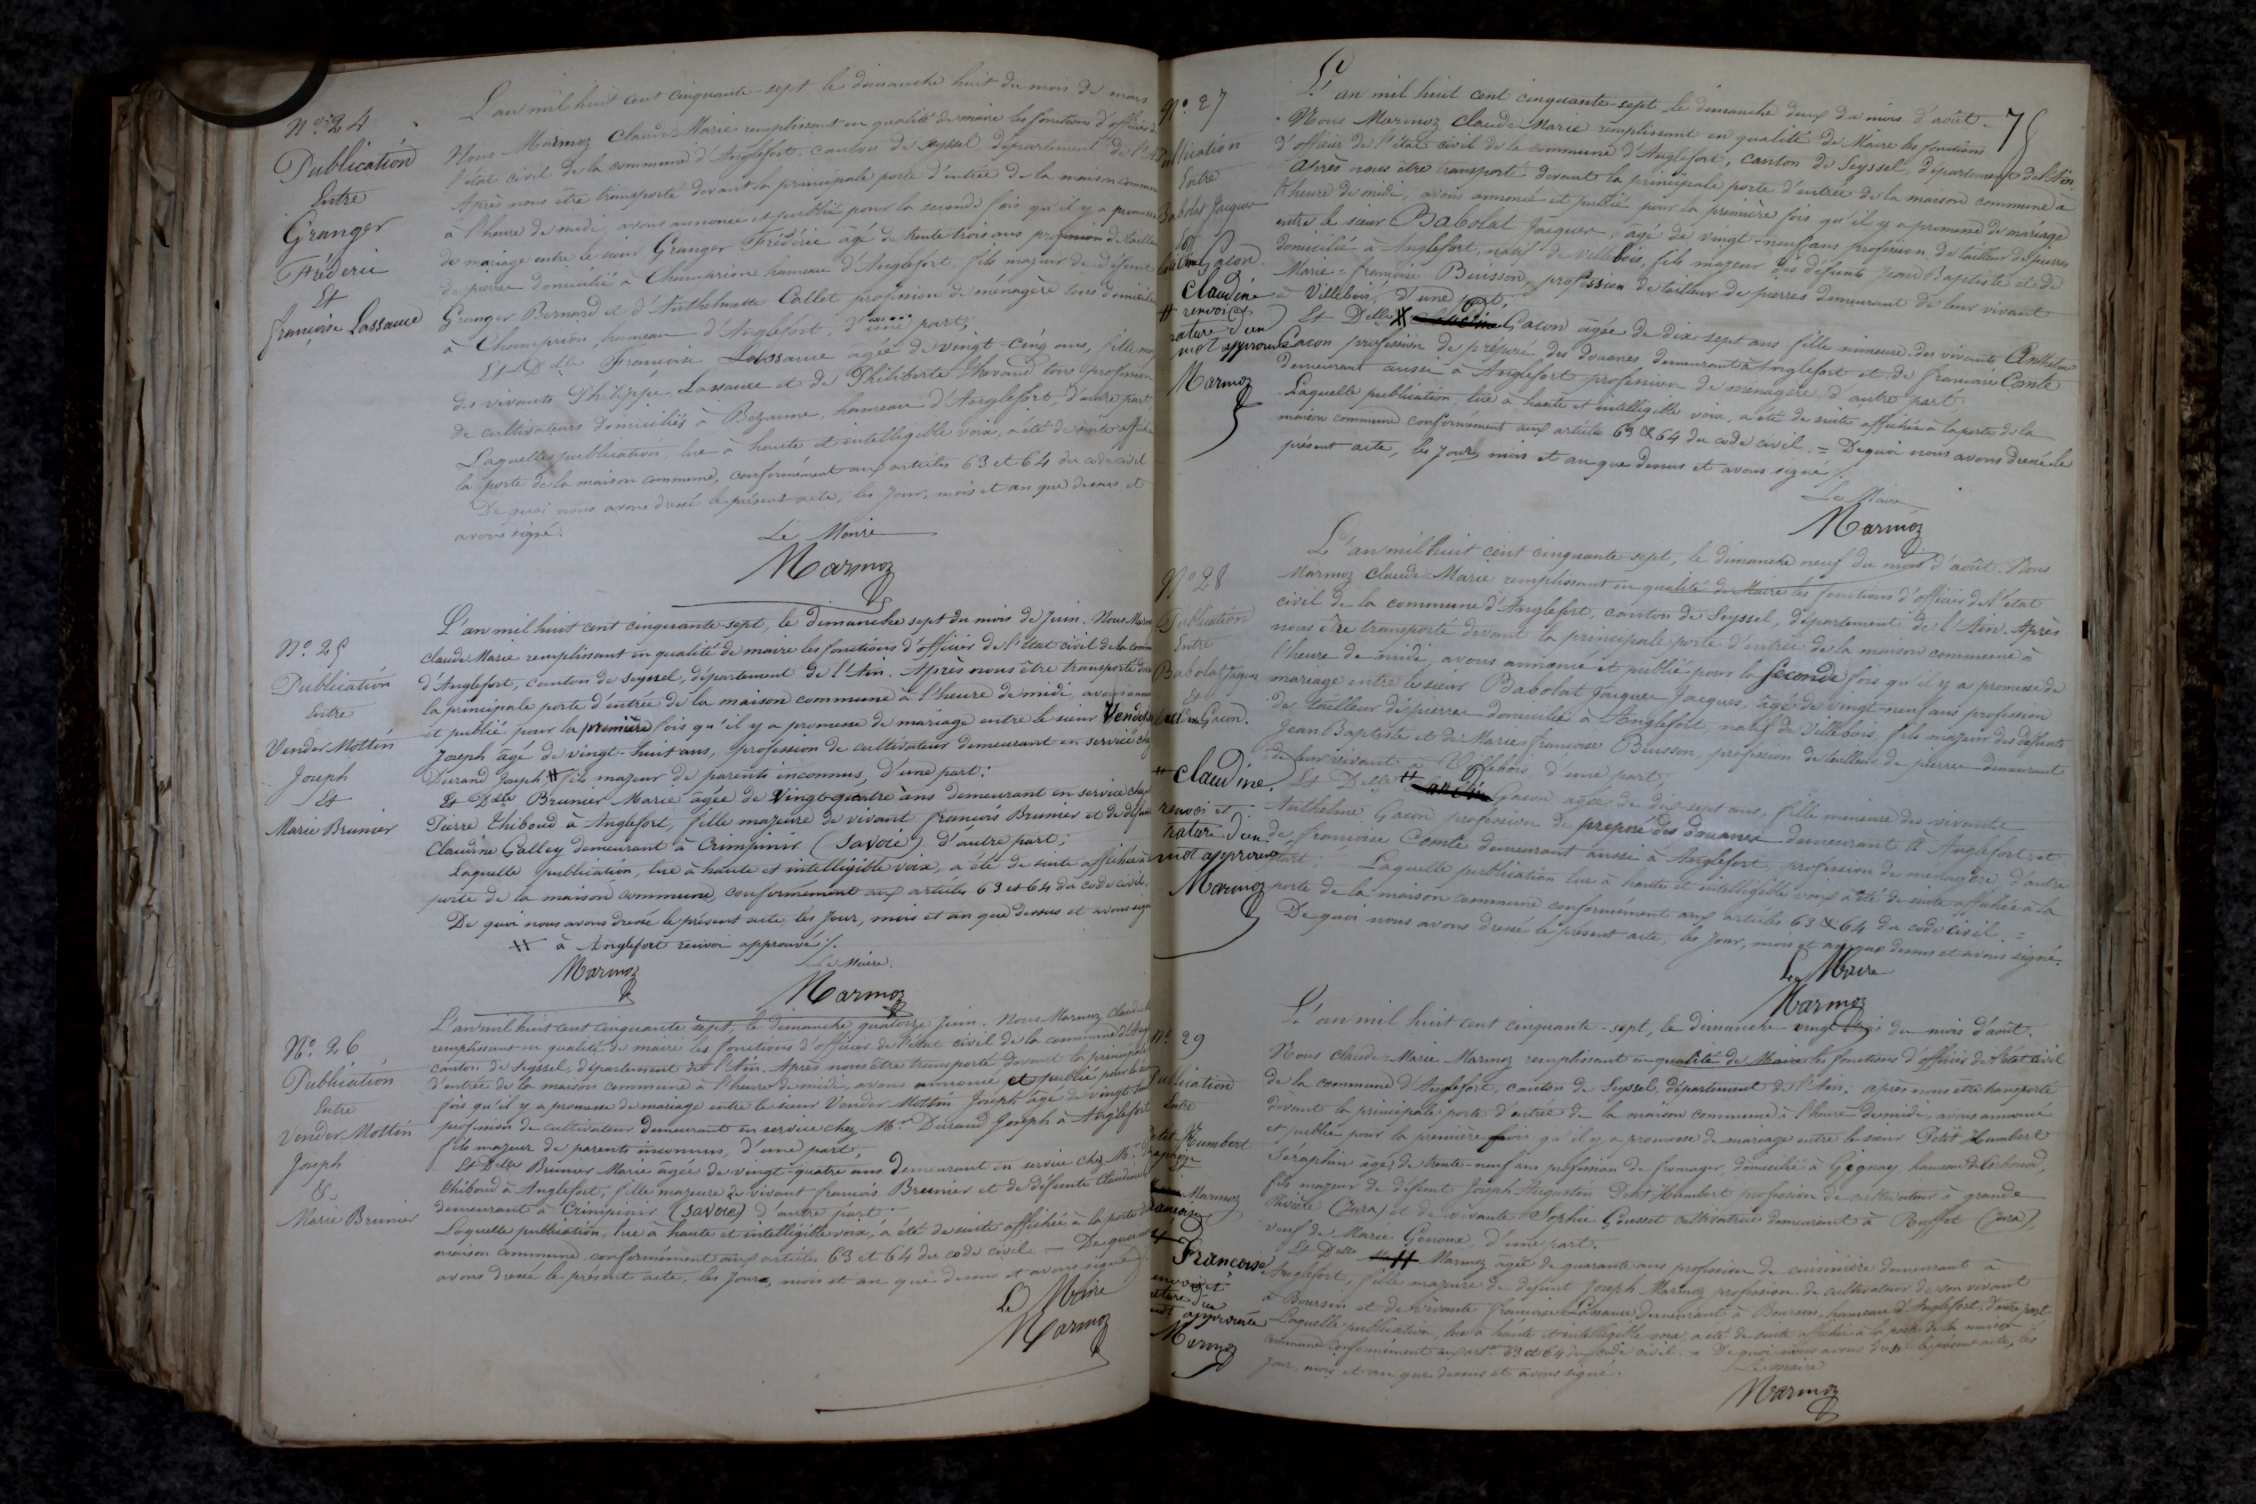 N° 24
Publication
Entre
Granger
Fréderic
Et
françoise Lassauce
L'an mil huit cent cinquante-sept le dimanche huit du mois de mars
Nous Marmoz Claude-Marie remplissant en qualité de maire les fonctions d'officier de
l'état civil de la commune d'Anglefort, canton de Seyssel département de l'
Après nous être transporté devant la principale porte d'entrée de la maison commune
à l'heure de midi, avons annoncé et publié pour la seconde fois qu'il y a promesse
de mariage entre le sieur Granger Fréderic âgé de trente trois ans profession de tailleur
de pierre domicilié à hameau d'Anglefort, fils majeur de défunt
Granger Bernard et d'Anthelmette Collet profession de ménagère tous domiciliés
à hameau d'Anglefort, d'une part;
Et Dlle Françoise Lassauce âgée de vingt-cinq ans, fille
des vivants Philippe Lassauce et de Philiberte tous profession
de cultivateurs domiciliés à hameau d'Anglefort, d'autre part,
Laquelle publication, lue à haute et intelligible voix, a été de suite
la porte de la maison commune, conformément aux articles 63 et 64 du code civil
De quoi nous avons dressé le présent acte, les jour, mois et an que dessus et
avons signé.
Le Maire
Marmoz
N° 25
Publication
Entre
Vender Mottin
Joseph
Et
Marie Brunier
L'an mil huit cent cinquante-sept, le dimanche sept du mois de Juin. Nous
Claude Marie remplissant en qualité de maire les fonctions d'officier de l'état civil de la
d'Anglefort, canton de Seyssel, département de l'Ain. Après nous être transporté
la principale porte d'entrée de la maison commune à l'heure de midi, avons
et publié pour la première fois qu'il y a promesse de mariage entre le sieur
Joseph âgé de vingt-huit ans, profession de cultivateur demeurant en service chez
Durand Joseph # fils majeur de parents inconnus, d'une part:
Et Dlle Brunier Marie âgée de vingt-quatre ans demeurant en service chez
Pierre Thiboud à Anglefort, fille majeure de vivant françois Brunier et de
Claudine Galley demeurant à Crimpinir (Savoie) d'autre part;
Laquelle publication, lue à haute et intelligible voix, a été de suite affichée à
porte de la maison commune, conformément aux articles 63 et 64 du code civil.
De quoi nous avons dressé le présent acte les jour, mois et an que dessus et avons
# à Anglefort renvoi approuvé ./.
Marmoz
Le Maire.
Marmoz
N° 26
Publication
Entre
Vender Mottin
Joseph
&
Marie Brunier
L'an mil huit cent cinquante sept, le dimanche quatorze Juin. Nous Marmoz
remplissant en qualité de maire les fonctions d'officier de l'état civil de la commune
canton de Seyssel, département de l'Ain. Après nous être transporté devant la principale
d'entrée de la maison commune à l'heure de midi, avons annoncé et publié pour la
fois qu'il y a promesse de mariage entre le sieur Vender Mottin Joseph âgé de vingt
profession de cultivateur demeurant en service chez Mr Durand Joseph à Anglefort
fils majeur de parents inconnus, d'une part,
Et Dlle Brunier Marie âgée de vingt-quatre ans demeurant en service chez Mr
Thiboud à Anglefort, fille majeure de vivant françois Brunier et de défunte
demeurant à Crimpinir (Savoie) d'autre part.
Laquelle publication, lue à haute et intelligible voix, a été de suite affichée à la porte
maison commune conformément aux articles 63 et 64 du code civil. — De quoi
avons dressé le présent acte, les jour, mois et an que dessus et avons signé
Le Maire
Marmoz
75
N° 27
Publication
Entre
Babolat Jacques
Gacon
Claudine
# renvoi et
rature d'un
mot approuvé
Marmoz
L'an mil huit cent cinquante-sept le dimanche deux du mois d'août.
Nous Marmoz Claude-Marie remplissant en qualité de Maire les fonctions
d'officier de l'état civil de la commune d'Anglefort, canton de Seyssel, département de l'Ain
Après nous être transporté devant la principale porte d'entrée de la maison commune à
l'heure de midi, avons annoncé et publié pour la première fois qu'il y a promesse de mariage
entre le sieur Babolat Jacques, âgé de vingt-neuf ans, profession de tailleur de pierres
domicilié à Anglefort, natif de Villebois, fils majeur des défunts Jean Baptiste et de
Marie-françoise Buisson, profession de tailleur de pierres demeurant de leur vivant
à Villebois, d'une part;
Et Dlle # Gacon âgée de dix sept ans fille mineure des vivants Anthelme
Gacon profession de préposé des douanes demeurant à Anglefort et de françoise Comte
demeurant aussi à Anglefort profession de ménagère d'autre part;
Laquelle publication, lue à haute et intelligible voix, a été de suite affichée à la porte de la
maison commune conformément aux articles 63 & 64 du code civil. = De quoi nous avons dressé le
présent acte, les jour, mois et an que dessus et avons signé ./.
Le Maire
Marmoz
N° 28
Publication
Entre
Babolat Jacques
Gacon.
# Claudine
renvoi et
rature d'un
mot approuvé
Marmoz
L'an mil huit cent cinquante sept, le dimanche neuf du mois d'août. Nous
Marmoz Claude-Marie remplissant en qualité de Maire les fonctions d'officier de l'état
civil de la commune d'Anglefort, canton de Seyssel, département de l'Ain. Après
nous être transporté devant la principale porte d'entrée de la maison commune à
l'heure de midi, avons annoncé et publié pour la seconde fois qu'il y a promesse de
mariage entre le sieur Babolat Jacques Jacques, âgé de vingt-neuf ans profession
de tailleur de pierre domicilié à Anglefort, natif de Villebois, fils majeur des deffunts
Jean Baptiste et de Marie françoise Buisson, profession de tailleur de pierre demeurant
de leur vivant à Villebois, d'une part;
Et Dlle # Gacon âgée de dix-sept ans, fille mineure des vivants
Anthelme Gacon profession de preposé des douanes demeurant à Anglefort et
de françoise Comte demeurant aussi à Anglefort, profession de ménagère d'autre
part; Laquelle publication lue à haute et intelligible voix a été de suite affichée à la
porte de la maison commune conformément aux articles 63 & 64 du code civil. =
De quoi nous avons dressé le présent acte, les jour, mois et an que dessus et avons signé.
Le Maire
Marmoz
N° 29
Publication
Entre
Petit Humbert
Marmoz
#
Françoise
renvoi et
rature d'un
mot approuvée
Marmoz
L'an mil huit cent cinquante-sept, le dimanche vingt trois du mois d'août.
Nous Claude-Marie Marmoz remplissant en qualité de Maire les fonctions d'officier de l'état civil
de la commune d'Anglefort, canton de Seyssel, département de l'Ain. après nous être transporté
devant la principale porte d'entrée de la maison commune à l'heure de midi, avons annoncé
et publié pour la première fois qu'il y a promesse de mariage entre le sieur Petit Humbert
Séraphin âgé de trente-neuf ans profession de fromager, domicilié à Gignay, hameau de Corbonod,
fils majeur de défunt Joseph Augustin Petit Humbert profession de cultivateur à grande
Rivière (Jura) et de vivante Sophie Gousset cultivatrice demeurant à (Jura),
veuf de Marie Genoux, d'une part.
Et Dlle # Marmoz âgée de quarante ans profession de cuisinière demeurant à
Anglefort, fille majeure de defunt Joseph Marmoz profession de cultivateur de son vivant
à Boursin et de vivante françoise Lassauce demeurant à Boursin, hameau d'Anglefort, d'autre part.
Laquelle publication, lue à haute et intelligible voix, a été de suite affichée à la porte de la maison
commune conformément aux artes 63 et 64 du code civil. = De quoi nous avons dressé le présent acte, les
jour, mois et an que dessus et avons signé.
Le maire
Marmoz